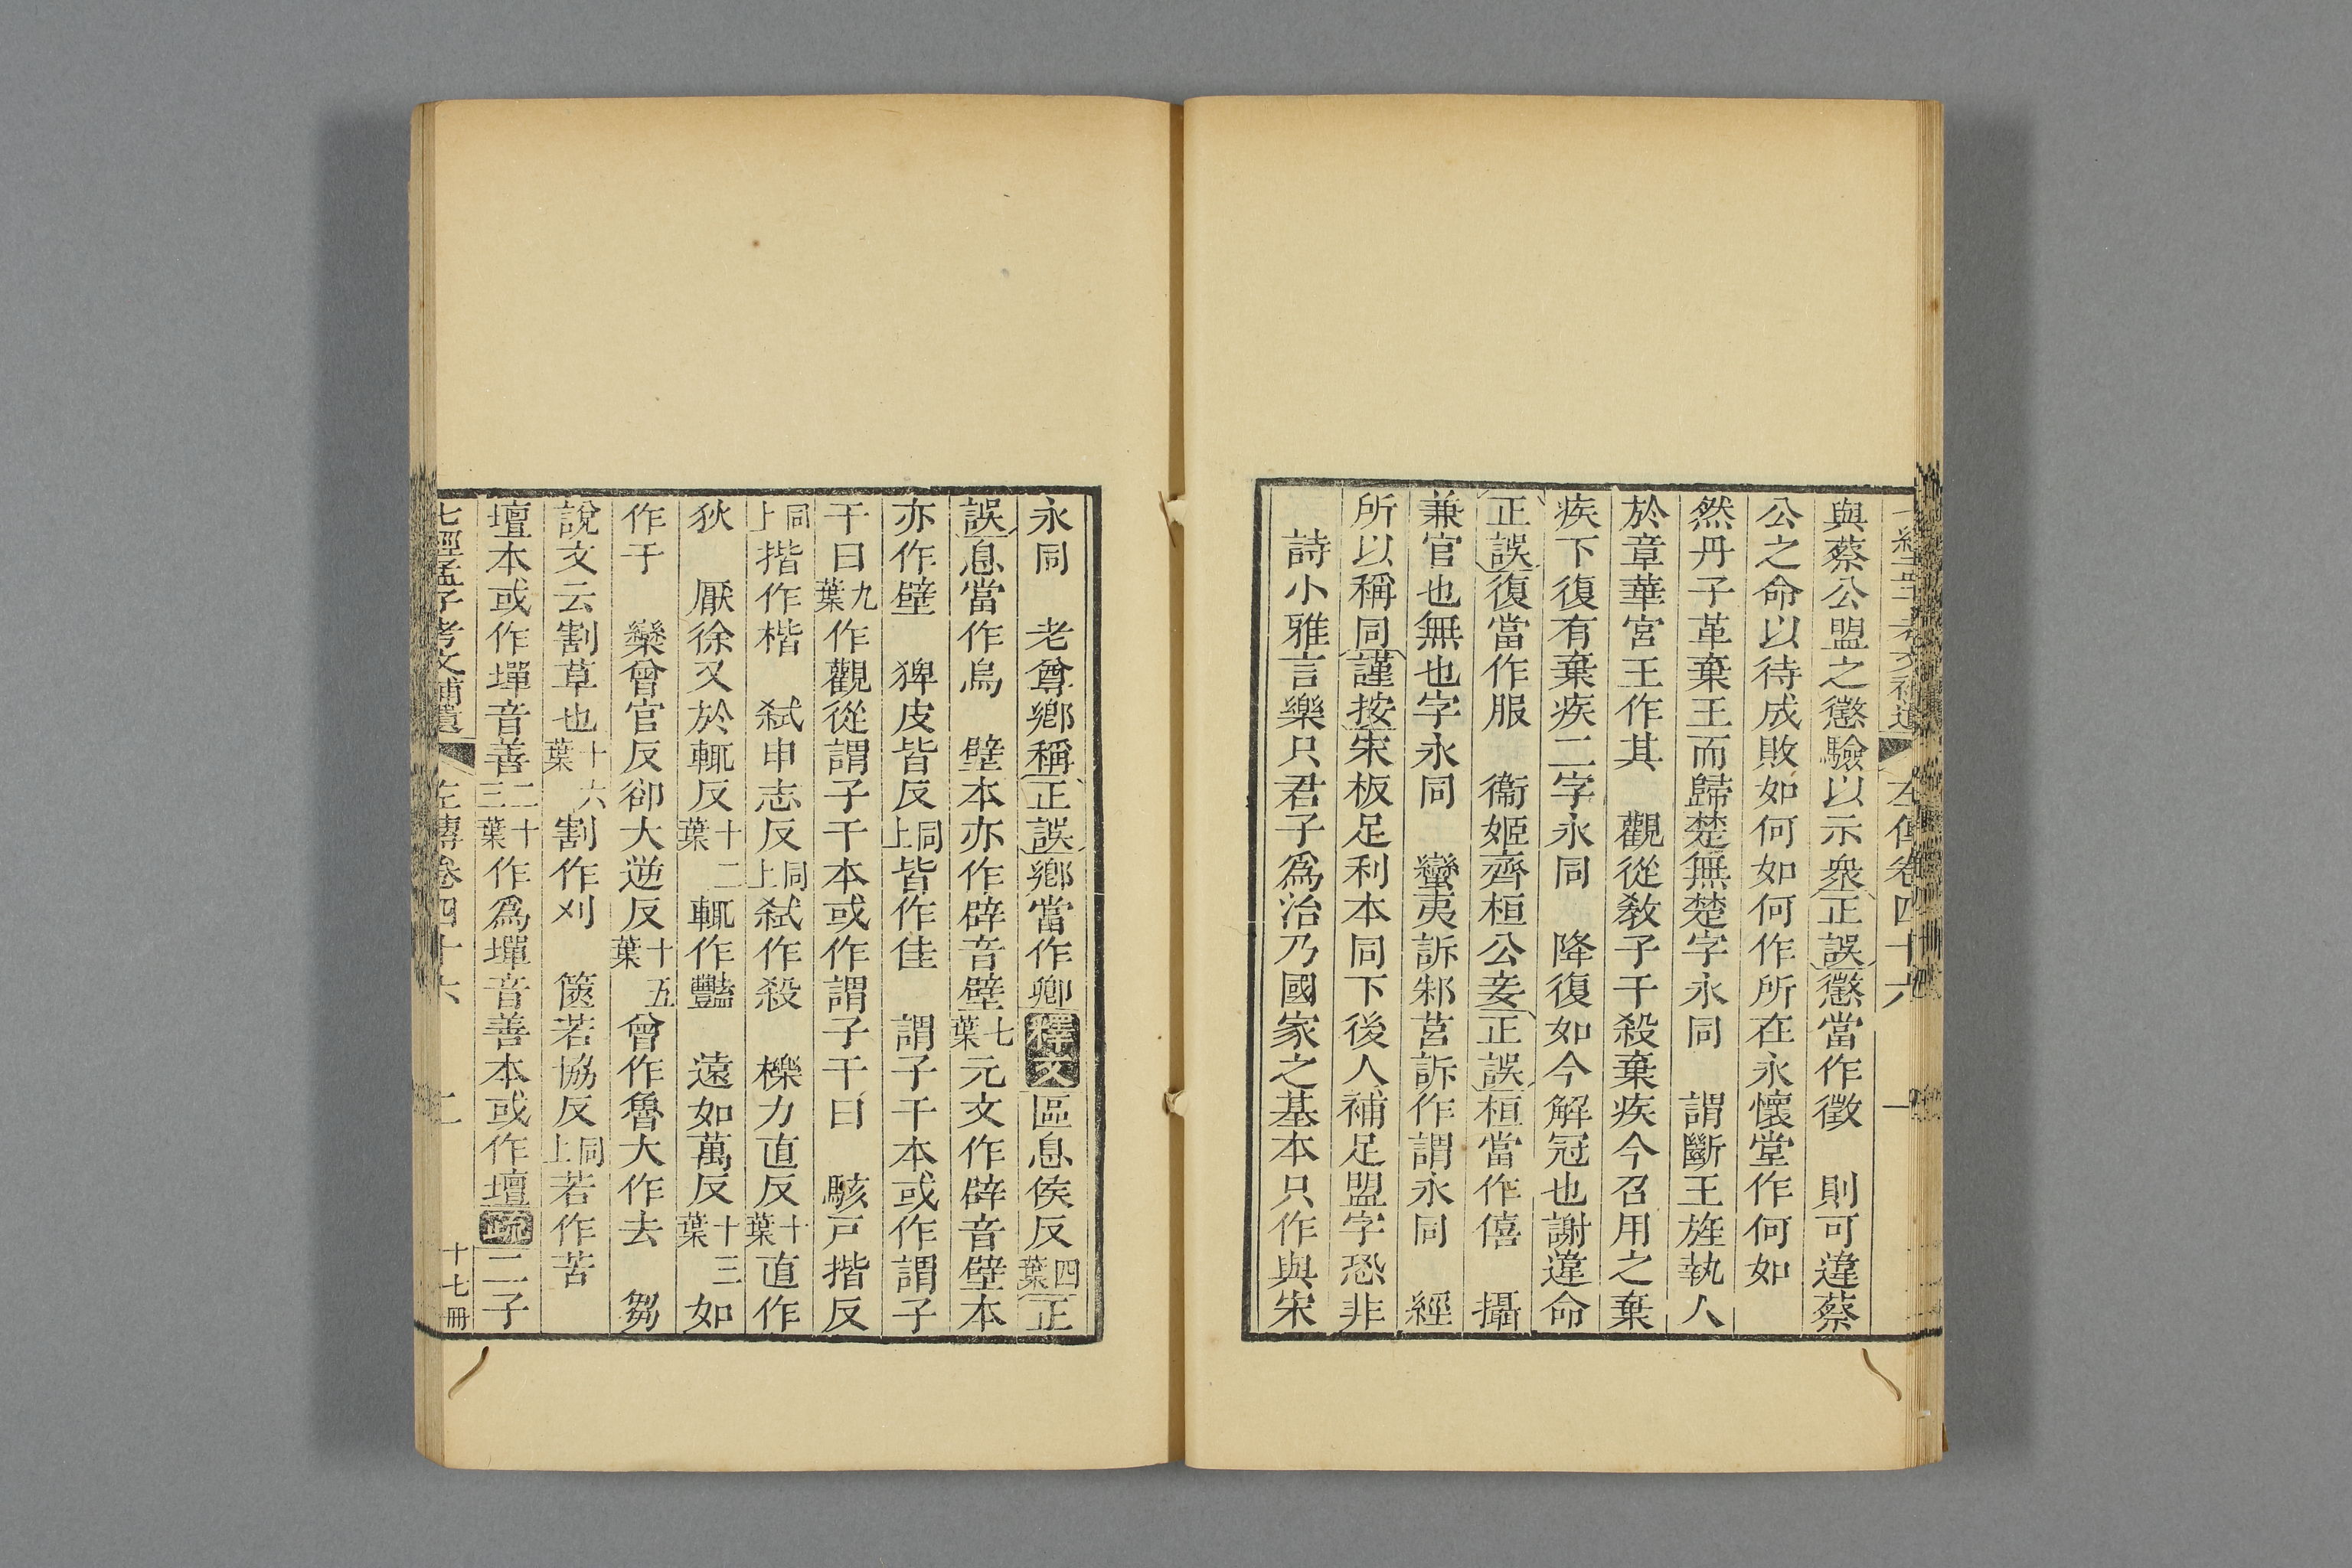 左傳卷四十六 一
與蔡公盟之懲驗以示衆正誤懲當作徵 則可違蔡
公之命以待成敗如何如何作所在永懷堂作何如
然丹子革棄王而歸楚無楚字永同 謂斷王旌執人
於章華宮王作其 觀從敎子干殺棄疾今召用之棄
疾下復有棄疾二字永同 降復如今解冠也謝違命
正誤復當作服 衞姬齊桓公妾正誤桓當作僖 攝
兼官也無也字永同 蠻夷訴邾莒訴作謂永同 經
所以稱同謹按宋板足利本同下後人補足盟字恐非
詩小雅言樂只君子爲治乃國家之基本只作與宋
永同 老尊鄕稱正誤鄕當作卿釋文區息侯反四葉正
誤息當作烏 壁本亦作辟音壁七葉元文作辟音壁本
亦作壁 猈皮皆反同上皆作佳 謂子干本或作謂子
干曰九葉作觀從謂子干本或作謂子干曰 駭戸揩反
同上揩作楷 弑申志反同上弑作殺 櫟力直反十葉直作
狄 厭徐又於輒反十二葉輒作豔 遠如萬反十三葉如
作于 欒曾官反卻大逆反十五葉曾作魯大作去 芻
說文云割草也十六葉割作刈 篋若協反同上若作苦
壇本或作墠音善二十三葉作爲墠音善本或作壇疏二子
七經孟子考文補遺 左傳卷四十六 二 十七冊